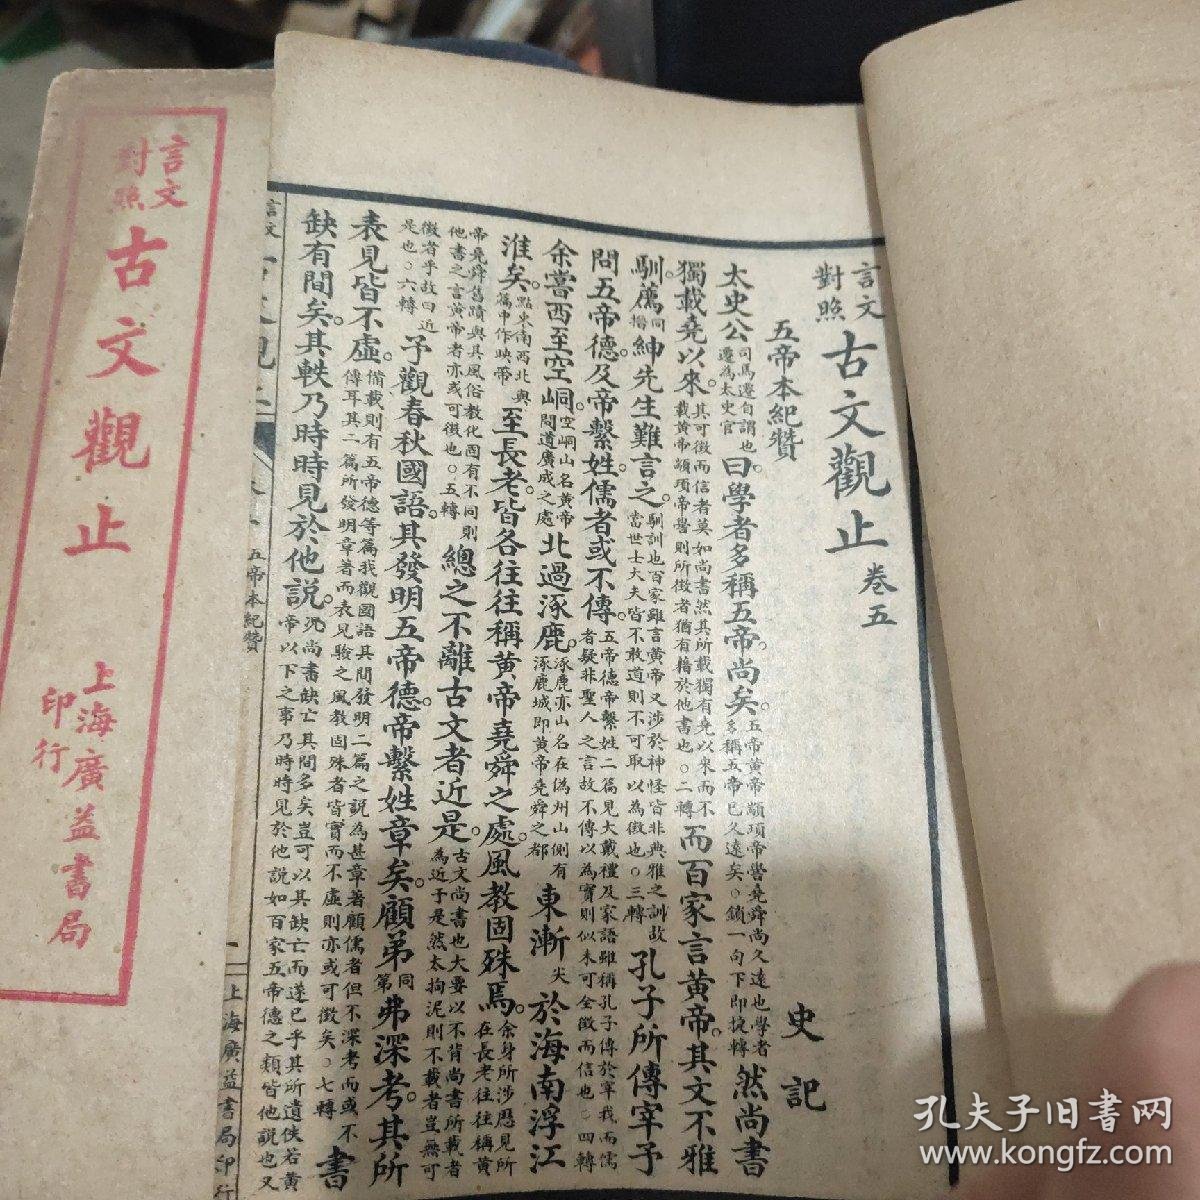 言文
對照
古文觀止
上海廣益書局
印行
言文
對照
古文觀止 卷五
五帝本紀贊
史記
太史公司馬遷自謂也。遷為太史官曰學者多稱五帝尚矣。五帝黃帝顓頊帝嚳堯舜尚久遠也學者多稱五帝已久遠矣。○鎖一句下即捷轉然尚書
獨載堯以來。其可徵而信者莫如尚書然其所載獨有堯以來而不載黃帝顓頊帝嚳則所徵者猶有藉於他書也。○二轉而百家言黃帝。其文不雅
馴。薦同搢紳先生難言之。馴訓也百家雖言黃帝又涉於神怪皆非典雅之訓故當世士大夫皆不敢道則不可取以為徵也。○三轉孔子所傳宰予
問五帝德。及帝繫姓。儒者或不傳。五帝德帝繫姓二篇見大戴禮及家語雖稱孔子傳於宰我而儒者疑非聖人之言故不傳以為實則似未可全徵而信也。○四轉
余嘗西至空峒。空峒山名黃帝問道廣成之處北過涿鹿。涿鹿亦山名在偽州山側有涿鹿城即黃帝堯舜之都東漸尖於海南浮江
淮矣。點東南西北與篇中作映帶至長老皆各往往稱黃帝堯舜之處。風教固殊焉。余身所涉歷見所在長老往往稱黃
帝堯舜舊蹟與其風俗教化固有不同則他書之言黃帝者亦或可徵也。○五轉總之不離古文者近是。古文尚書也大要以不背尚書所載者為近于是然太拘泥則不載者豈無可
徵者乎故曰近是也。○六轉予觀春秋國語。其發明五帝德。帝繫姓章矣。顧弟同第弗深考。其所
表見皆不虛。備載則有五帝德等篇我觀國語其間發明二篇之說為甚章著顧儒者但不深考而或不傳耳其二篇所發明章著而表見驗之風教固殊者皆實而不虛則亦或可徵矣。○七轉書
缺有間矣。其軼乃時時見於他說。況尚書缺亡其間多矣豈可以其缺亡而遂已乎其所遺佚若黃帝以下之事乃時時見於他說如百家五帝德之類皆他說也又
五帝本紀贊
一
上海廣益書局印行
孔夫子旧書网
www.kongfz.com